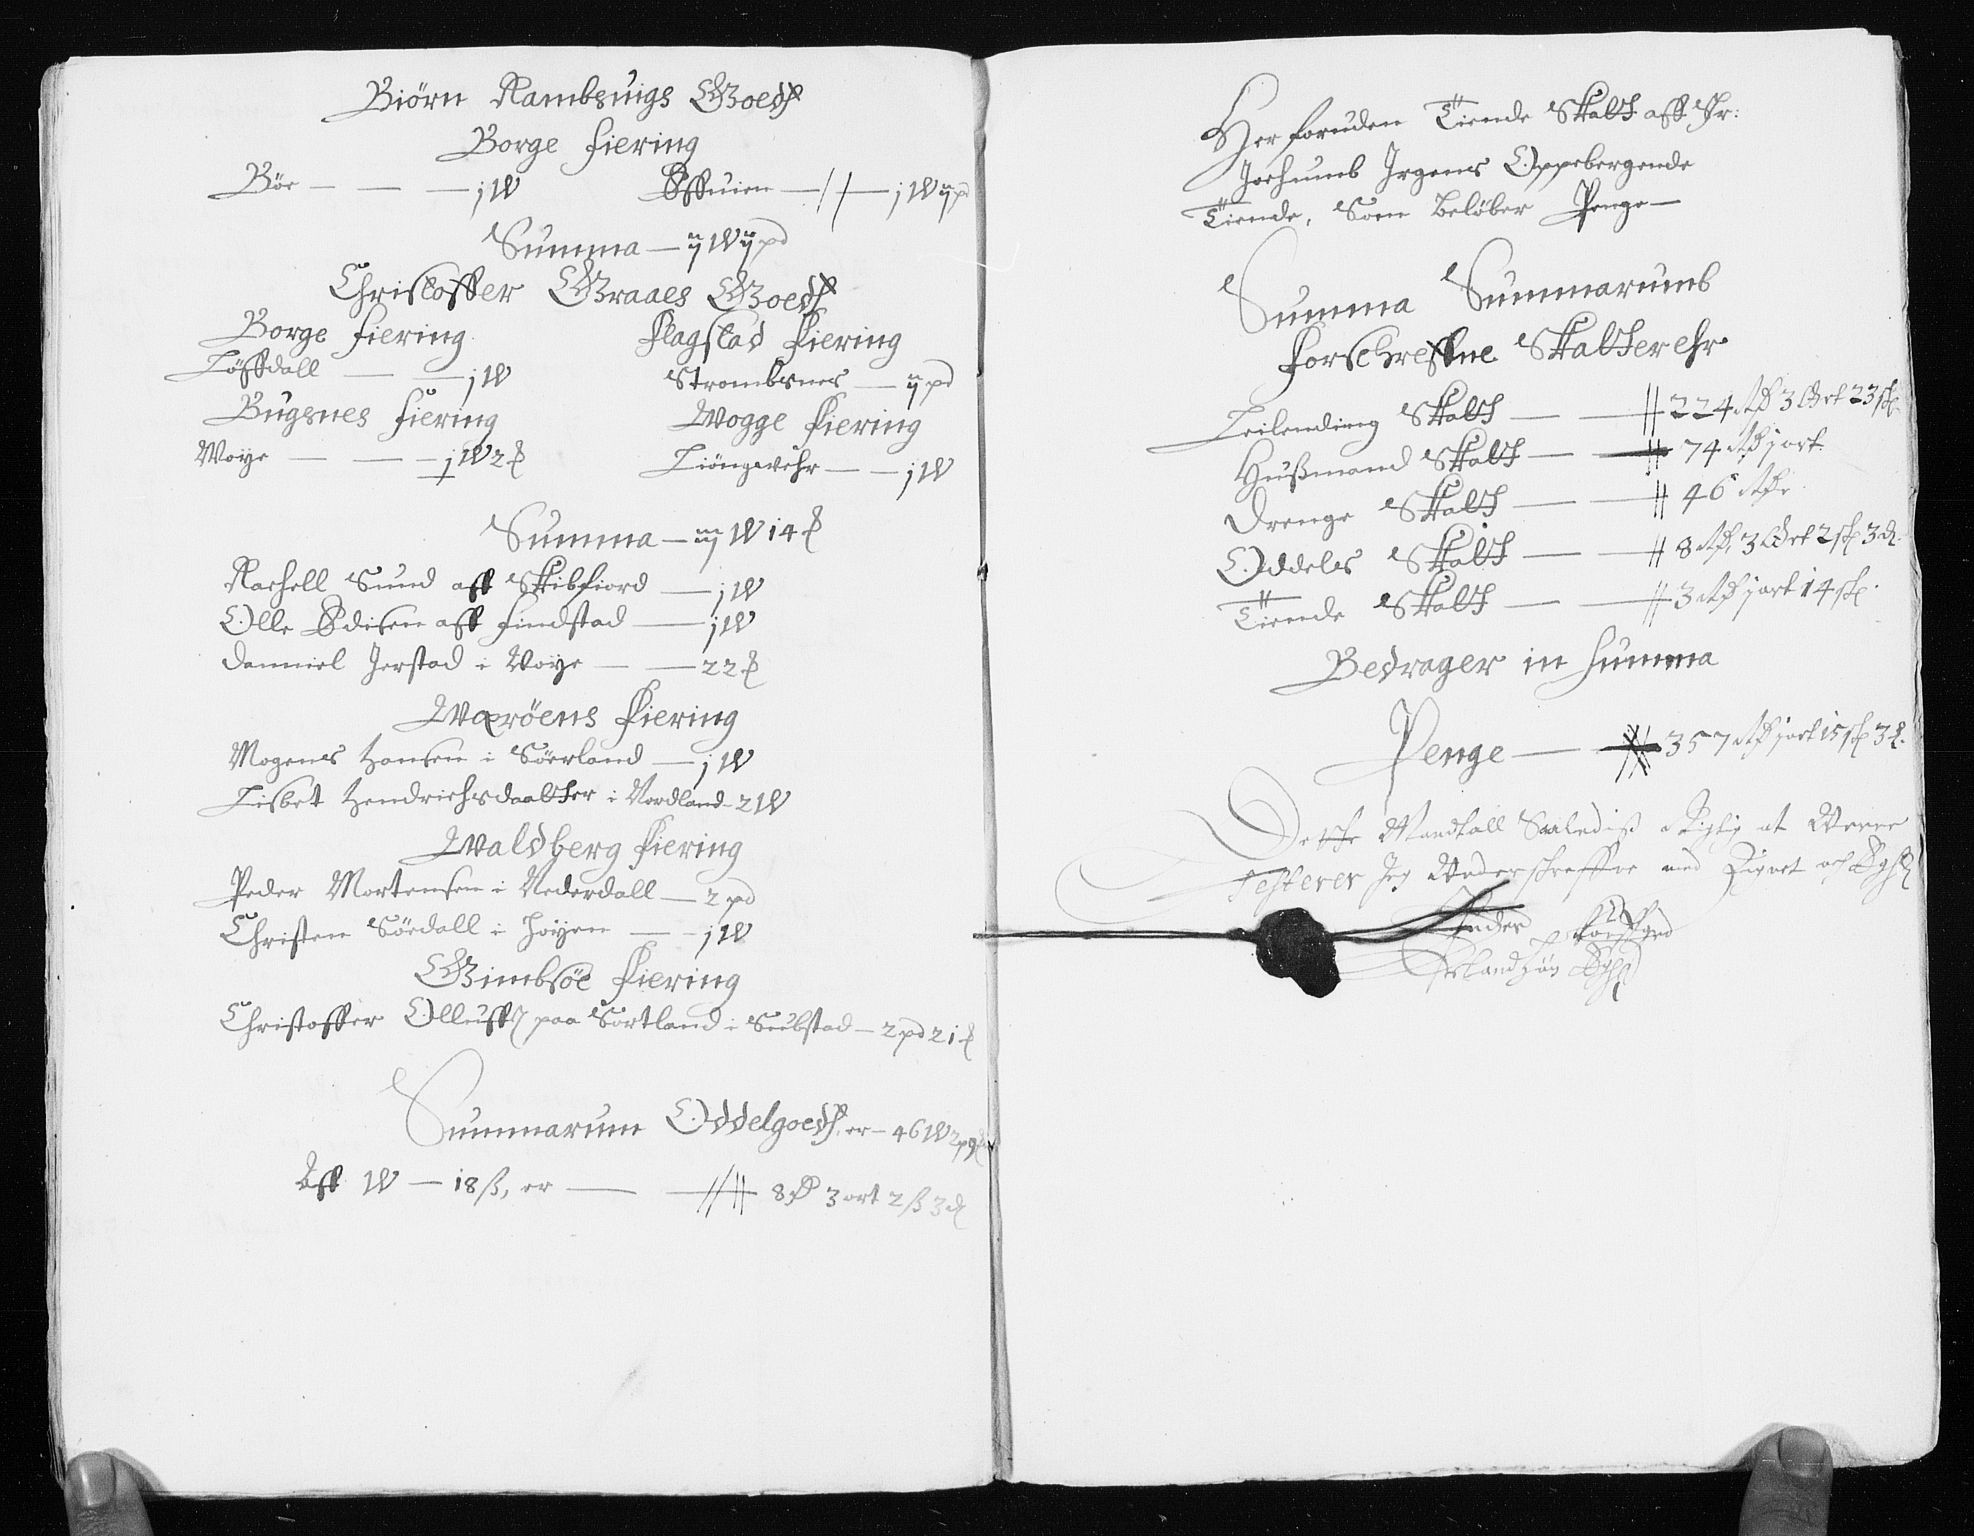 Biørn Rambsuigs Goeds
Borge fiering
Böe — — — j W
Offuien — // — j W ij pd
Summa — ij W ij pd
Christoffer Graaes Goeds
Borge fiering
Flagstad Fiering
Löffdall — — j W
Strombsnes — ij pd
Bugsnes fiering
Wogge Fiering
Woye — — — j W 2 ℔
Liöngwehr — — j W
Summa — iiij W 14 ℔
Rachell Sund aff Skibfiord — j W
Olle Edisen aff findstad — j W
Danniel Jerstad i Woye — — 22 ℔
Wærøens Fiering
Mogens Hansen i Söerland — j W
Lisbet Hendrichsdaatter i Nordland — 2 W
Waldberg Fiering
Peder Mortensen i Nederdall — 2 pd
Christen Söedall i Höyen — — j W
Gimbsöe Fiering
Christoffer Olluffs paa Sortland i Seubstad — 2 pd 21 ℔
Summarum Oddelgoeds, er — 46 W 2 pd
Aff W — 18 ß, er — // // 8 D 3 ort 2 ß 3 d
Her foruden Tiende Skatt aff Hr:
Jochumb Irgens Oppebergende
Tiende, Som beløber Penge —
Summa Summarumb
forschreffne Skatter ehr
Leilending Skatt — — // 224 Rd 3 Ort 23 sk
Hußmand Skatt — — // 74 Rd j ort
Drenge Skatt — — // 46 Rdr
Oddels Skatt — — // 8 Rd, 3 Ort 2 sk 3 d.
Tiende Skatt — — // 3 Rd j ort 14 sk.
Bedrager in Summa
Penge — — // 357 Rd j ort 15 sk 3 d.
Dette Mandtall Saalediß Rigtig at Werre
Testerer Jeg Underschreffne med Zignet och